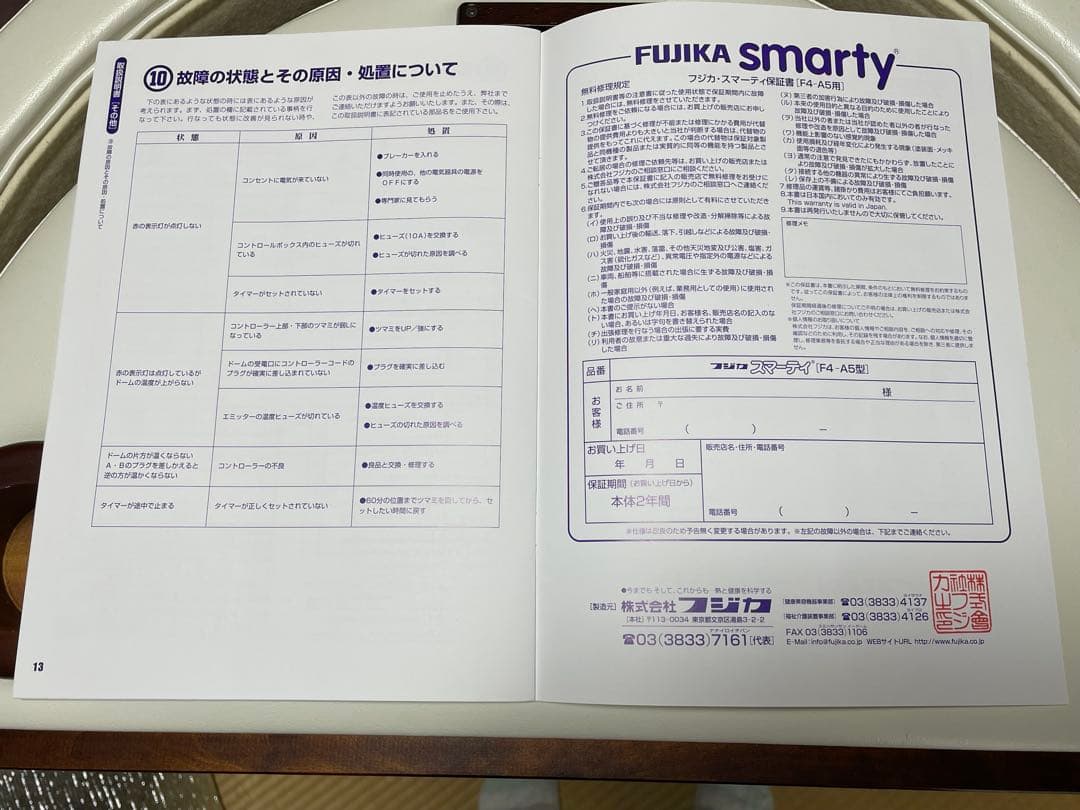 取扱説明書【その他】
⑩故障の原因とその原因・処置について
⑩ 故障の状態とその原因・処置について
下の表にあるような状態の時には表にあるような原因が
考えられます。まず、処置の欄に記載されている事柄を行
なって下さい。行なっても状態に改善が見られない時や、
この表以外の故障の時は、ご使用を止めたうえ、弊社まで
ご連絡いただけますようお願いいたします。また、その際は、
この取扱説明書に表記されている部品名をご使用下さい。
状態 原因 処置
赤の表示灯が点灯しない
コンセントに電気が来ていない
●ブレーカーを入れる
●同時使用の、他の電気器具の電源を
OFFにする
●専門家に見てもらう
コントロールボックス内のヒューズが切れ
ている
●ヒューズ(10A)を交換する
●ヒューズが切れた原因を調べる
タイマーがセットされていない
●タイマーをセットする
赤の表示灯は点灯しているが
ドームの温度が上がらない
コントローラー上部・下部のツマミが弱に
なっている
●ツマミをUP/強にする
ドームの受電口にコントローラーコードの
プラグが確実に差し込まれていない
●プラグを確実に差し込む
エミッターの温度ヒューズが切れている
●温度ヒューズを交換する
●ヒューズの切れた原因を調べる
ドームの片方が温くならない
A・Bのプラグを差しかえると
逆の方が温かくならない
コントローラーの不良
●良品と交換・修理する
タイマーが途中で止まる
タイマーが正しくセットされていない
●60分の位置までツマミを回してから、セ
ットしたい時間に戻す
13
FUJIKA smarty®
フジカ・スマーティ保証書[F4-A5用]
無料修理規定
1.取扱説明書等の注意書に従った使用状態で保証期間内に故障
した場合には、無料修理をさせていただきます。
2.無料修理をご依頼になる場合には、お買上げの販売店にお申し
つけください。
3.この保証書に基づく修理が不能または修理にかかる費用が代替
物の提供費用よりも大きいと当社が判断する場合は、代替物
をもってこれに代えます。この場合の代替物は保証対象製
品と同機種の製品または実質的に同等の機能を持つ製品とさ
せて頂きます。
4.ご転居の場合の修理ご依頼先等は、お買上げの販売店または
株式会社フジカのご相談窓口にご相談ください。
5.ご贈答品等で本保証書に記入の販売店で無料修理をお受けに
なれない場合には、株式会社フジカのご相談窓口へご連絡くだ
さい。
6.保証期間内でも次の場合には原則として有料にさせていただき
ます。
(イ)使用上の誤り及び不当な修理や改造・分解掃除等による故
障及び破損・損傷
(ロ)お買上げ後の輸送、落下、引越しなどによる故障及び破損・
損傷
(ハ)火災、地震、水害、落雷、その他天災地変及び公害、塩害、ガ
ス害(硫化ガスなど)、異常電圧や指定外の電源などによる
故障及び破損・損傷
(ニ)車両、船舶等に搭載された場合に生ずる故障及び破損・損
傷
(ホ)一般家庭用以外(例えば、業務用としての使用)に使用され
た場合の故障及び破損・損傷
(ヘ)本書のご提示がない場合
(ト)本書にお買上げ年月日、お客様名、販売店名の記入のな
い場合、あるいは字句を書き替えられた場合
(チ)出張修理を行なう場合の出張に要する実費
(リ)利用者の故意または重大な過失により故障及び破損・損傷
した場合
(ヌ)第三者の加害行為により故障及び破損・損傷した場合
(ル)本来の使用目的と異なる目的のために使用したことにより
故障及び破損・損傷した場合
(ヲ)当社以外の者または当社が認めた者以外の者が行なった
修理や改造を原因として故障及び破損・損傷した場合
(ワ)機能上影響のない感覚的現象
(カ)使用損耗及び経年変化により発生する現象(塗装面・メッキ
面等の退色等)
(ヨ)通常の注意で発見できたにもかかわらず、放置したことに
より故障及び破損・損傷が拡大した場合
(タ)接続する他の機器の異常により生ずる故障及び破損・損傷
(レ)保存上の不備による故障及び破損・損傷
7.修理品の運賃等、諸掛かり費用はお客様にてご負担願います。
8.本書は日本国内においてのみ有効です。
This warranty is valid in Japan.
9.本書は再発行いたしませんので大切に保管してください。
修理メモ
品番 フジカ スマーティ®[F4-A5型]
お客様
お名前 様
ご住所 〒
電話番号 ( ) −
お買い上げ日
年 月 日
販売店名・住所・電話番号
保証期間(お買い上げ日から)
本体2年間
電話番号 ( ) −
※仕様は改良のため予告無く変更する場合があります。※左記の故障以外の場合は、下記までご連絡ください。
●今までもそして、これからも 熱と健康を科学する
[製造元] 株式会社 フジカ
[本社] 〒113-0034 東京都文京区湯島3-2-2
☎03(3833)7161[代表]
[健康美容機器事業部] ☎03(3833)4137
[福祉介護装置事業部] ☎03(3833)4126
FAX 03(3833)1106
E-Mail:info@fujika.co.jp WEBサイトURL http://www.fujika.co.jp